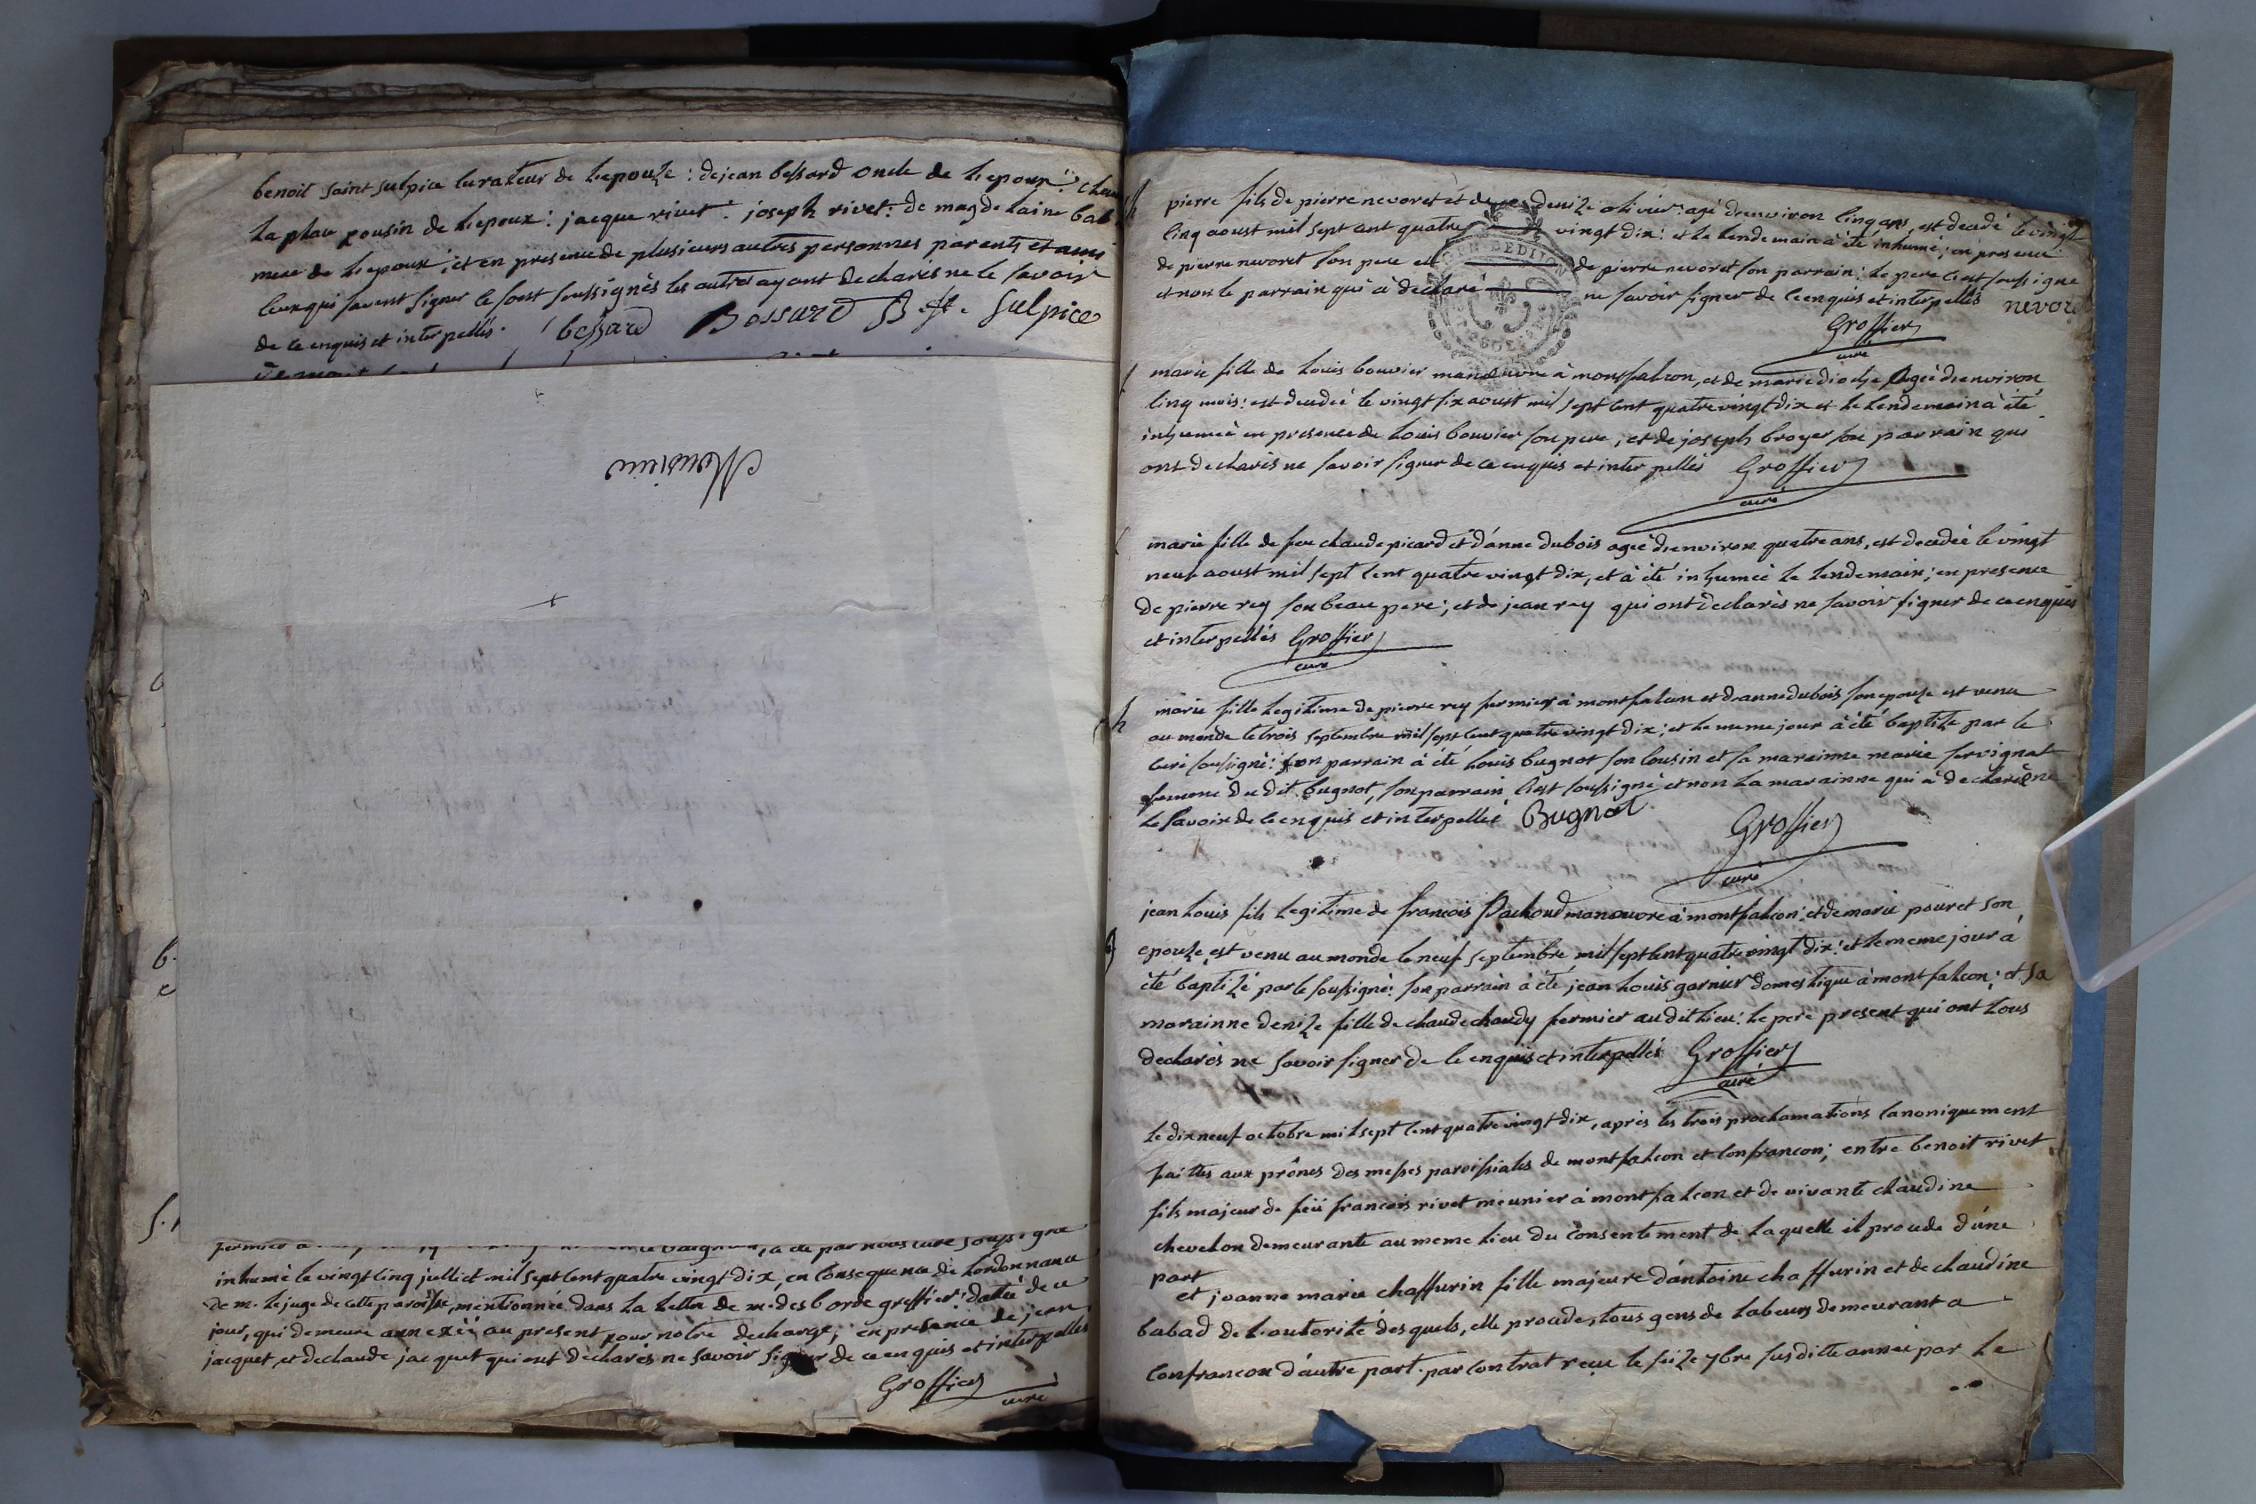 benoit saint sulpice curateur de l'epouze : de jean bessard oncle de l'epoux :
la plau cousin de l'epoux : jacque rivet : joseph rivet : de magdelaine
mere de l'epoux ; et en presence de plusieurs autres personnes parents et amis
ceux qui savent signer se sont soussignés les autres ayant declarés ne le savoir
de ce enquis et interpellés . bessard Bossard B st. Sulpice
Monsieur
inhumé le vingt cinq juillet mil sept cent quatre vingt dix, en consequence de l'ordonnance
de m. le juge de cette paroisse, mentionnée dans la lettre de m. desborde greffier datée de ce
jour, qui demeure annexée au present pour notre decharge, en presence de jean
jacquet, et de claude jacquet qui ont declarés ne savoir signer de ce enquis et interpellés
Groffier
curé
pierre fils de pierre nevoret et de denize olivier : agé d'environ cinq ans, est decedé le vingt
cinq aoust mil sept cent quatre vingt dix : et le lendemain à été inhumé ; en presence
de pierre nevoret son pere et de pierre nevoret son parrain : le pere s'est soussigné
et non le parrain qui à declaré ne savoir signer de ce enquis et interpellés nevore
Groffier
curé
marie fille de louis bouvier manœuvre à montfalcon, et de marie agée d'environ
cinq mois : est decedée le vingt six aoust mil sept cent quatre vingt dix et le lendemain à été
inhumée en presence de louis bouvier son pere, et de joseph broyer son parrain qui
ont declarés ne savoir signer de ce enquis et interpellés Groffier
curé
marie fille de feu claude picard et d'anne dubois agée d'environ quatre ans, est decedée le vingt
neuf aoust mil sept cent quatre vingt dix, et à été inhumée le lendemain ; en presence
de pierre rey son beau pere ; et de jean rey qui ont declarés ne savoir signer de ce enquis
et interpellés Groffier
curé
marie fille legitime de pierre rey fermier à montfalcon et d'anne dubois son epouze est venu
au monde le trois septembre mil sept cent quatre vingt dix ; et le meme jour à été baptize par le
curé soussigné : son parrain à été louis bugnot son cousin et sa marainne marie servignat
femme du dit bugnot, son parrain s'est soussigné et non la marainne qui à declaré ne
le savoir de ce enquis et interpellée Bugnot
Groffier
curé
jean louis fils legitime de francois Pachoud manouvre à montfalcon ; et de marie pouret son
epouze est venu au monde le neuf septembre mil sept cent quatre vingt dix : et le meme jour à
été baptizé par le soussigné : son parrain à été jean louis garnier domestique à montfalcon ; et sa
marainne denize fille de claude chaudy fermier au dit lieu : le pere present qui ont tous
declarés ne savoir signer de ce enquis et interpellés Groffier
curé
le dix neuf octobre mil sept cent quatre vingt dix, après les trois proclamations canoniquement
faittes aux prônes des messes paroissiales de montfalcon et confrancon ; entre benoit rivet
fils majeur de feü francois rivet meunier à montfalcon et de vivante claudine
chevelon demeurante au meme lieu du consentement de laquelle il procede d'une
part
et jeanne marie chaffurin fille majeure d'antoine chaffurin et de claudine
babad de l'autorité desquels, elle procede, tous gens de labeurs demeurant a
confrancon d'autre part. par contrat reçu le seize 7bre susditte année par le